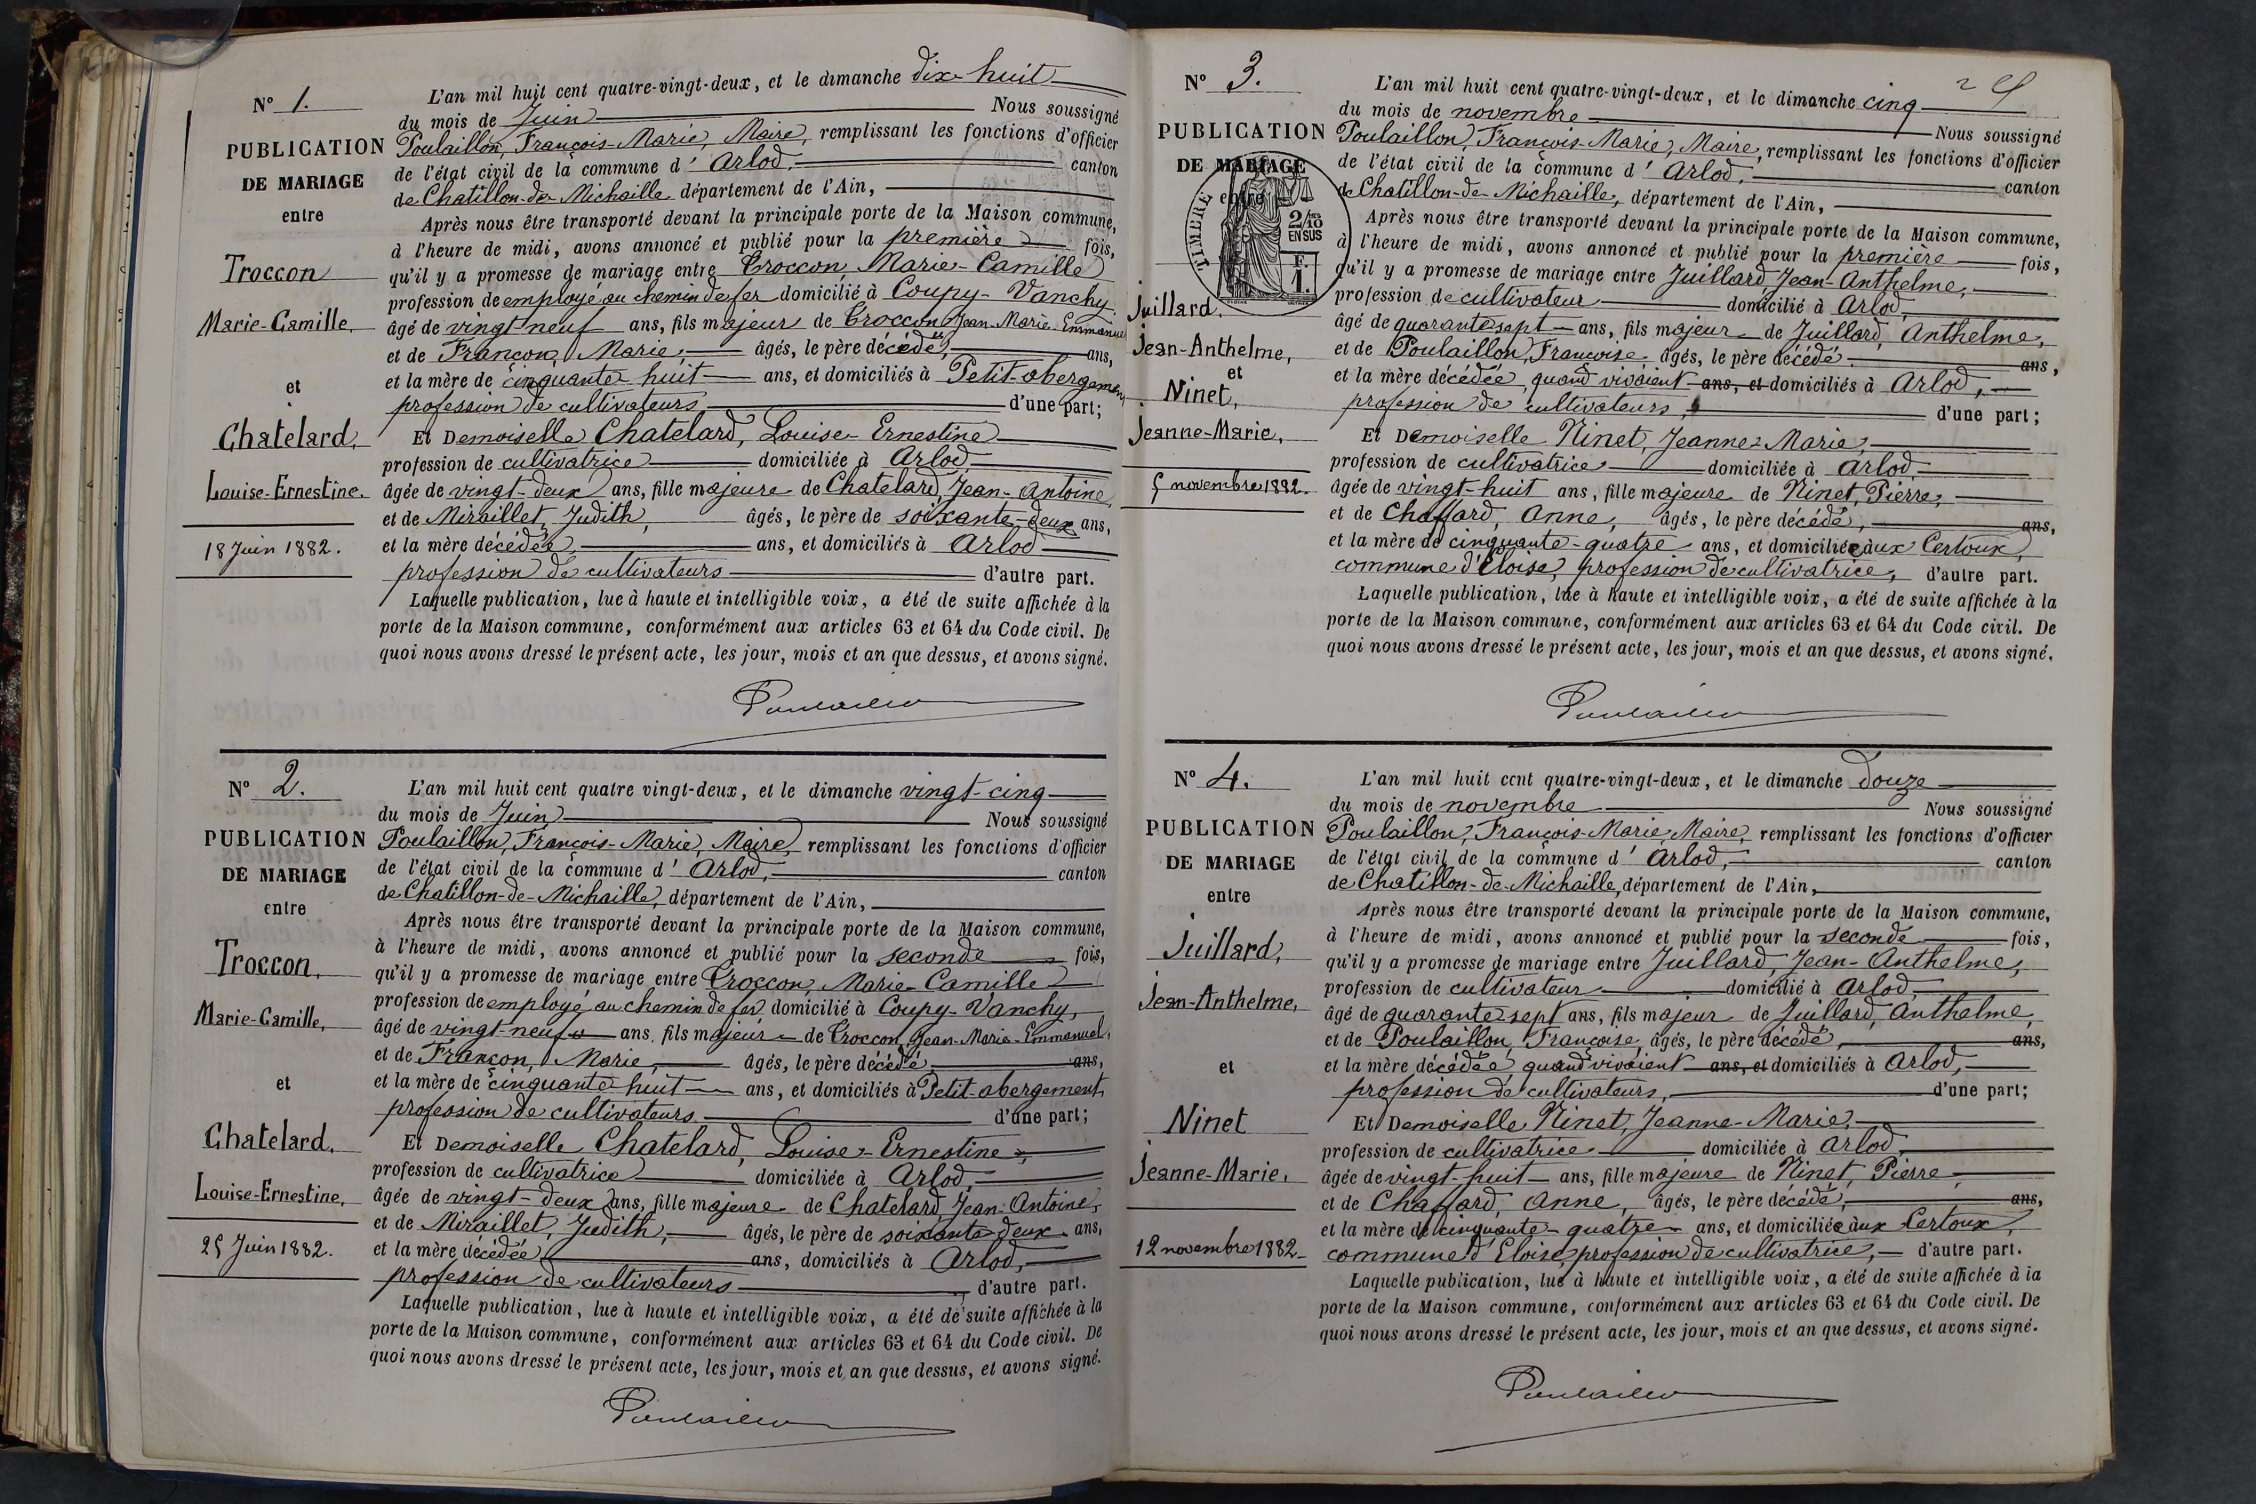 N° 1.
PUBLICATION
DE MARIAGE
entre
Troccon
Marie-Camille,
et
Chatelard,
Louise-Ernestine.
18 Juin 1882.
L'an mil huit cent quatre-vingt-deux, et le dimanche dix-huit
du mois de Juin Nous soussigné
Poulaillon, François-Marie, Maire, remplissant les fonctions d'officier
de l'état civil de la commune d' Arlod, canton
de Chatillon-de-Michaille département de l'Ain,
Après nous être transporté devant la principale porte de la Maison commune,
à l'heure de midi, avons annoncé et publié pour la première fois,
qu'il y a promesse de mariage entre Troccon, Marie-Camille
profession de employé au chemin de fer domicilié à Coupy-Vanchy.
âgé de vingt-neuf ans, fils majeur de Troccon Jean-Marie-Emmanuel
et de Françon, Marie, âgés, le père décédé, ans,
et la mère de cinquante-huit ans, et domiciliés à Petit-abergement
profession de cultivateurs d'une part;
Et Demoiselle Chatelard, Louise-Ernestine
profession de cultivatrice domiciliée à Arlod,
âgée de vingt-deux ans, fille majeure de Chatelard, Jean-Antoine,
et de Miraillet, Judith, âgés, le père de soixante-deux ans,
et la mère décédée, ans, et domiciliés à Arlod
profession de cultivateurs d'autre part.
Laquelle publication, lue à haute et intelligible voix, a été de suite affichée à la
porte de la Maison commune, conformément aux articles 63 et 64 du Code civil. De
quoi nous avons dressé le présent acte, les jour, mois et an que dessus, et avons signé.
Poulaillon
N° 2.
PUBLICATION
DE MARIAGE
entre
Troccon,
Marie-Camille,
et
Chatelard,
Louise-Ernestine,
25 Juin 1882.
L'an mil huit cent quatre vingt-deux, et le dimanche vingt-cinq
du mois de Juin Nous soussigné
Poulaillon, François-Marie, Maire, remplissant les fonctions d'officier
de l'état civil de la commune d' Arlod, canton
de Chatillon-de-Michaille, département de l'Ain,
Après nous être transporté devant la principale porte de la Maison commune,
à l'heure de midi, avons annoncé et publié pour la seconde fois,
qu'il y a promesse de mariage entre Troccon, Marie-Camille
profession de employé au chemin de fer domicilié à Coupy-Vanchy,
âgé de vingt-neuf ans, fils majeur de Troccon Jean-Marie-Emmanuel,
et de Françon, Marie, âgés, le père décédé, ans,
et la mère de cinquante-huit ans, et domiciliés à Petit-abergement,
profession de cultivateurs d'une part;
Et Demoiselle Chatelard, Louise-Ernestine,
profession de cultivatrice domiciliée à Arlod,
âgée de vingt-deux ans, fille majeure de Chatelard, Jean-Antoine,
et de Miraillet, Judith, âgés, le père de soixante-deux ans,
et la mère décédée ans, domiciliés à Arlod,
profession de cultivateurs d'autre part.
Laquelle publication, lue à haute et intelligible voix, a été de suite affichée à la
porte de la Maison commune, conformément aux articles 63 et 64 du Code civil. De
quoi nous avons dressé le présent acte, les jour, mois et an que dessus, et avons signé.
Poulaillon
N° 3.
PUBLICATION
DE MARIAGE
entre
TIMBRE
2/10
EN SUS
F.
1.
Juillard,
Jean-Anthelme,
et
Ninet,
Jeanne-Marie,
5 novembre 1882.
L'an mil huit cent quatre-vingt-deux, et le dimanche cinq
du mois de novembre Nous soussigné
Poulaillon, François-Marie, Maire, remplissant les fonctions d'officier
de l'état civil de la commune d' Arlod, canton
de Chatillon-de-Michaille, département de l'Ain,
Après nous être transporté devant la principale porte de la Maison commune,
à l'heure de midi, avons annoncé et publié pour la première fois,
qu'il y a promesse de mariage entre Juillard, Jean-Anthelme,
profession de cultivateur domicilié à Arlod,
âgé de quarante sept ans, fils majeur de Juillard, Anthelme,
et de Poulaillon, Françoise âgés, le père décédé ans,
et la mère décédée, quand vivaient ans, et domiciliés à Arlod,
profession de cultivateurs, d'une part;
Et Demoiselle Ninet, Jeanne-Marie,
profession de cultivatrice domiciliée à Arlod,
âgée de vingt-huit ans, fille majeure de Ninet, Pierre,
et de Chaffard, Anne, âgés, le père décédé, ans,
et la mère de cinquante-quatre ans, et domiciliée aux Certoux,
commune d'Eloise, profession de cultivatrice, d'autre part.
Laquelle publication, lue à haute et intelligible voix, a été de suite affichée à la
porte de la Maison commune, conformément aux articles 63 et 64 du Code civil. De
quoi nous avons dressé le présent acte, les jour, mois et an que dessus, et avons signé.
Poulaillon
N° 4.
PUBLICATION
DE MARIAGE
entre
Juillard,
Jean-Anthelme,
et
Ninet
Jeanne-Marie,
12 novembre 1882
L'an mil huit cent quatre-vingt-deux, et le dimanche douze
du mois de novembre Nous soussigné
Poulaillon, François-Marie, Maire, remplissant les fonctions d'officier
de l'état civil de la commune d' Arlod, canton
de Chatillon-de-Michaille, département de l'Ain,
Après nous être transporté devant la principale porte de la Maison commune,
à l'heure de midi, avons annoncé et publié pour la seconde fois,
qu'il y a promesse de mariage entre Juillard, Jean-Anthelme,
profession de cultivateur domicilié à Arlod,
âgé de quarante sept ans, fils majeur de Juillard, Anthelme,
et de Poulaillon, Françoise, âgés, le père décédé, ans,
et la mère décédée, quand vivaient ans, et domiciliés à Arlod,
profession de cultivateurs, d'une part;
Et Demoiselle Ninet, Jeanne-Marie,
profession de cultivatrice domiciliée à Arlod,
âgée de vingt-huit ans, fille majeure de Ninet, Pierre,
et de Chaffard, Anne, âgés, le père décédé, ans,
et la mère de cinquante-quatre ans, et domiciliée aux Certoux,
commune d'Eloise, profession de cultivatrice, d'autre part.
Laquelle publication, lue à haute et intelligible voix, a été de suite affichée à la
porte de la Maison commune, conformément aux articles 63 et 64 du Code civil. De
quoi nous avons dressé le présent acte, les jour, mois et an que dessus, et avons signé.
Poulaillon